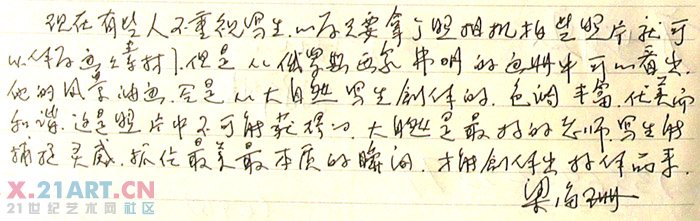 现在有些人不重视写生.以为只要拿了照相机拍些照片就可
以作为画画素材了.但是从俄罗斯画家 弗明的画册中可以看出.
他的风景油画.全是从大自然写生创作的.色调丰富.优美而
和谐.这是照片中不可能获得的.大自然是最好的老师写生能
捕捉灵感.抓住最美最本质的瞬间.才能创作出好作品来.
梁海珊
X.21ART.CN
21世纪艺术网社区